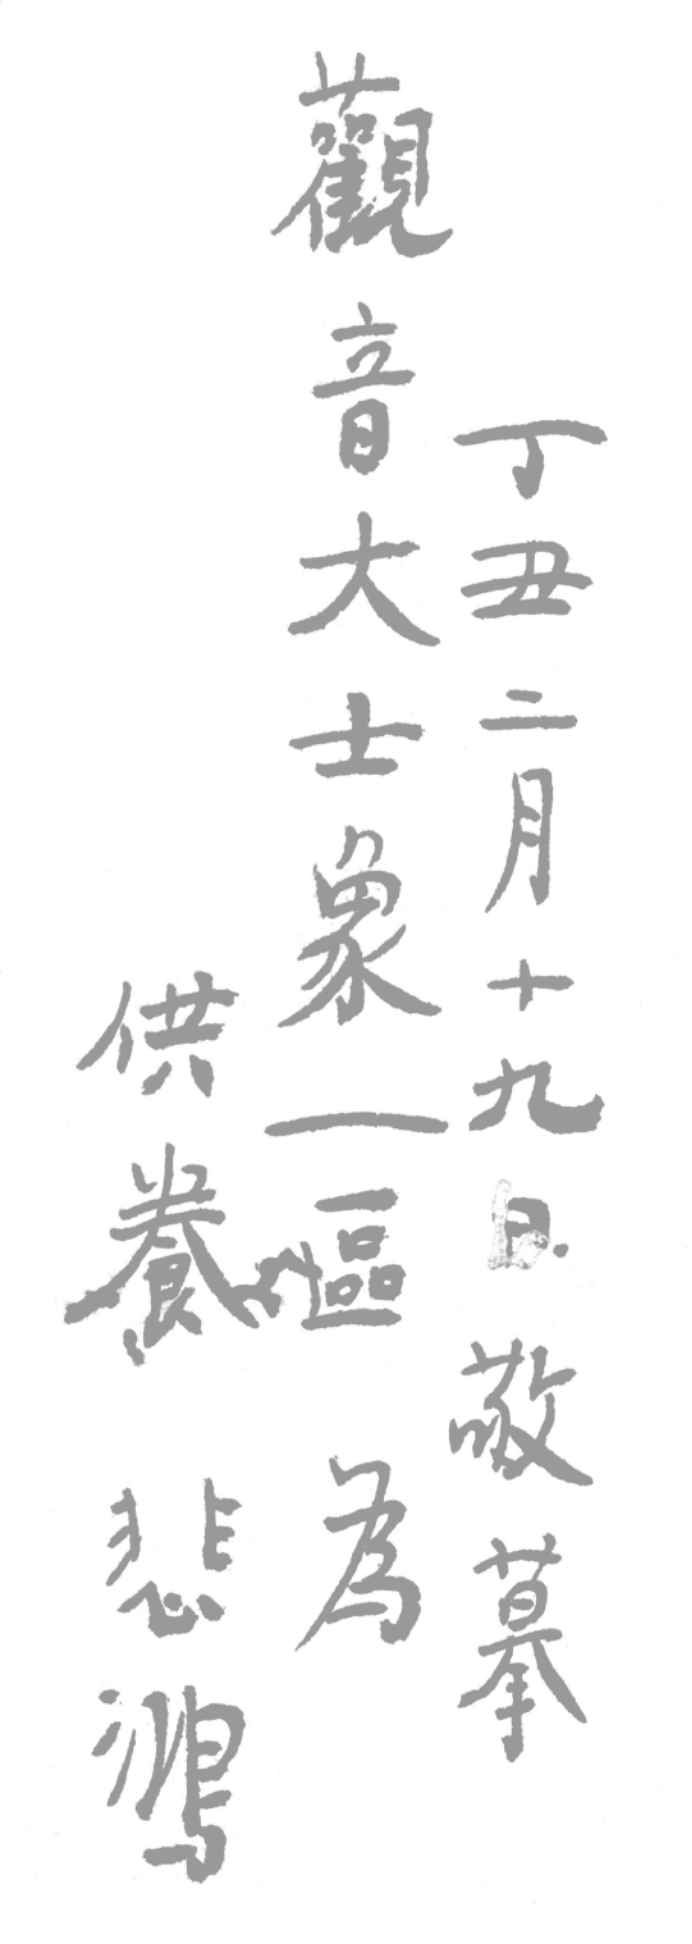 丁丑二月十九日敬摹
觀音大士象一區為
供養悲鴻